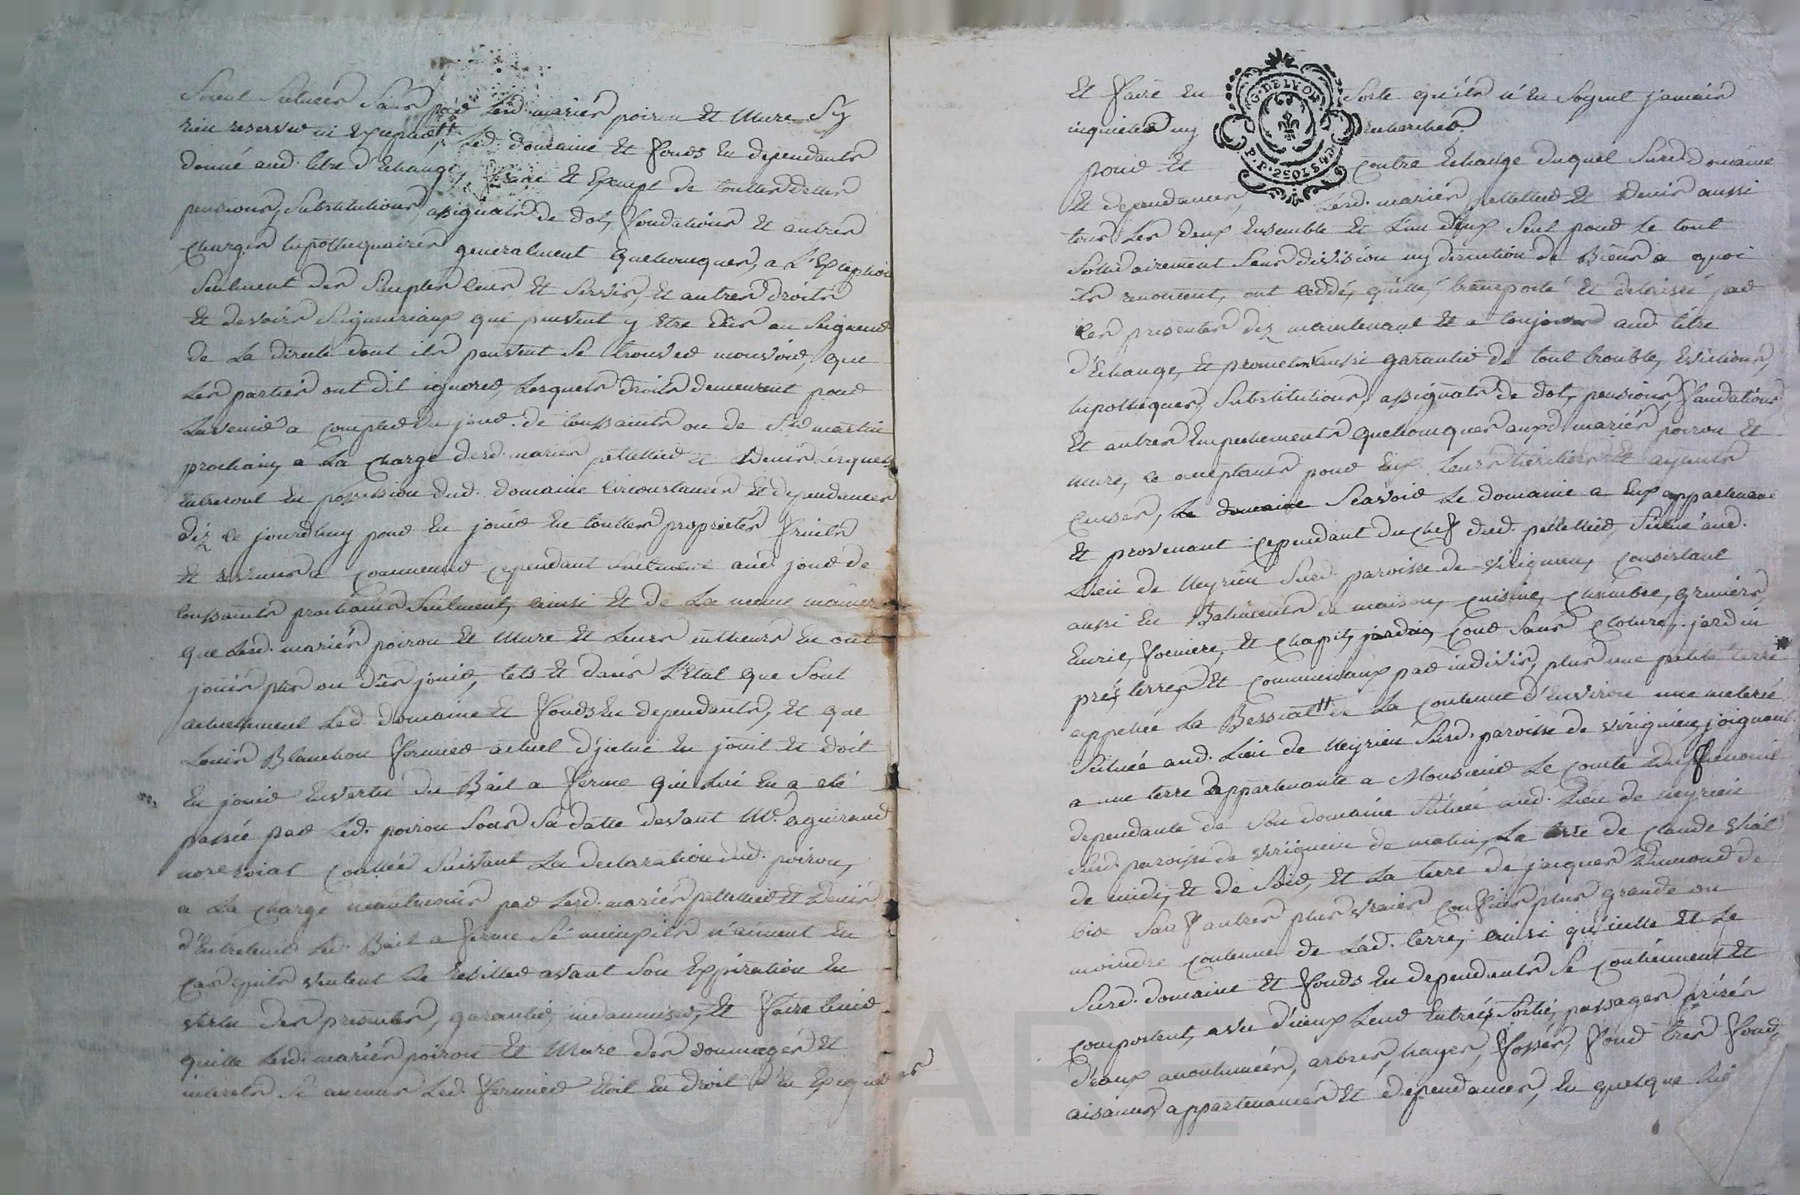 soient situées sans par lesd. mariés poiron et Mure sy
rien reserver ni excepter, led. domaine et fonds en dependants
donné aud. titre d'Echange, franc et Exempt de touttes dettes
pensions, substitutions, assignats de dot, fondations et autres
charges hipothequaires generalement quelconques, a L'Exception
seulement des simples cens et servis, et autres droits
et devoirs seigneuriaux qui peuvent y etre dûs au seigneur
de la directe dont ils peuvent se trouver mouvoir, que
Les parties ont dit ignorer, Lesquels droits demeurent pour
Lavenir a compter du jour de toussaints ou de St martin
prochain, a La charge desd. mariés pelletier et Denis lesquels
Entreront en possession dud. domaine circonstances et dependances
dèz ce jourdhuy pour en jouir en touttes proprietés fruits
et revenus a commencer cependant seulement aud. jour de
toussaints prochains seulement, ainsi et de La meme maniere
que Lesd. mariés poiron et Mure et Leurs autheurs en ont
jouis pû ou dû jouir, tels et dans L'Etat que sont
actuelement Led. domaine et fonds en dependants, et que
Louis Blanchon fermier actuel d'jcelui en jouit et doit
En jouir En vertu du Bail a ferme qui Lui en a eté
passé par Led. poiron sous sa datte devant Me. aguiraud
nore royal suivant La declaration dud. poiron,
a La charge neantmoins par Lesd. mariés pelletier et Denis
d'Entretenir Led. Bail a ferme si mieux ils n'aiment en
cas quils veulent Le resilier avant son Expiration en
vertu des presentes, garantir, indamniser, et faire tenir
quitte Lesd. mariés poiron et Mure des dommages et
interets si aucuns Led. fermier Etoit en droit d'en Exiger
et faire en sorte qu'ils n'en soyent jamais
inquietés ny recherchés.
G. DE LYON
P.P. 2 SOLS 4 D
pour et contre Echange duquel surd. domaine
et dependances, Lesd. mariés pelletier et Denis aussi
tous Les deux Ensemble et L'un d'Eux seul pour Le tout
solidairement sans division ny discution de Biens a quoi
ils renoncent, ont ceddé, quitté, transporté et delaissé par
ces presentes dèz maintenant et a toujours aud. titre
d'Echange, et promettent aussi garantir de tout trouble, Evictions,
hipotheques, substitutions, assignats de dot, pensions, fondations
et autres Empechements quelconques auxd. mariés poiron et
Mure, ce acceptants pour Eux Leurs heritiers et ayants
causes, Le domaine scavoir Le domaine a Eux appartenant
et provenant cependant du chef dud. pelletier, situé aud.
Lieu de Neyrieu surd. paroisse de virignieu, consistant
aussi en Batiments de maison, cuisine, chambre, greniers,
Ecurie, foeniere, et chapit, jardin, cour sans cloture, jardin
prés terres et communaux par indivis, plus une petite terre
appellée La Bessiatt de La contenue d'Environ une meterée
située aud. Lieu de Neyrieu surd. paroisse de virignieu, joignant
a une terre appartenante a Monsieur Le comte de
dependante de son domaine situé aud. Lieu de Neyrieu
surd. paroisse de virignieu de matin, La terre de claude vial
de midi, et de soir, et La terre de jacques de
bise sauf autres plus vrais confins plus grande ou
moindre contenue de Lad. terre, ainsi qu'icelle et Le
surd. domaine et fonds en dependants se contiennent et
comportent, avec d'iceux Leur Entrées, sortie, passages prises
d'eaux accoutumées, arbres, hayes, fossés, fond tres fond,
aisances appartenances et dependances, en quelque Lieu